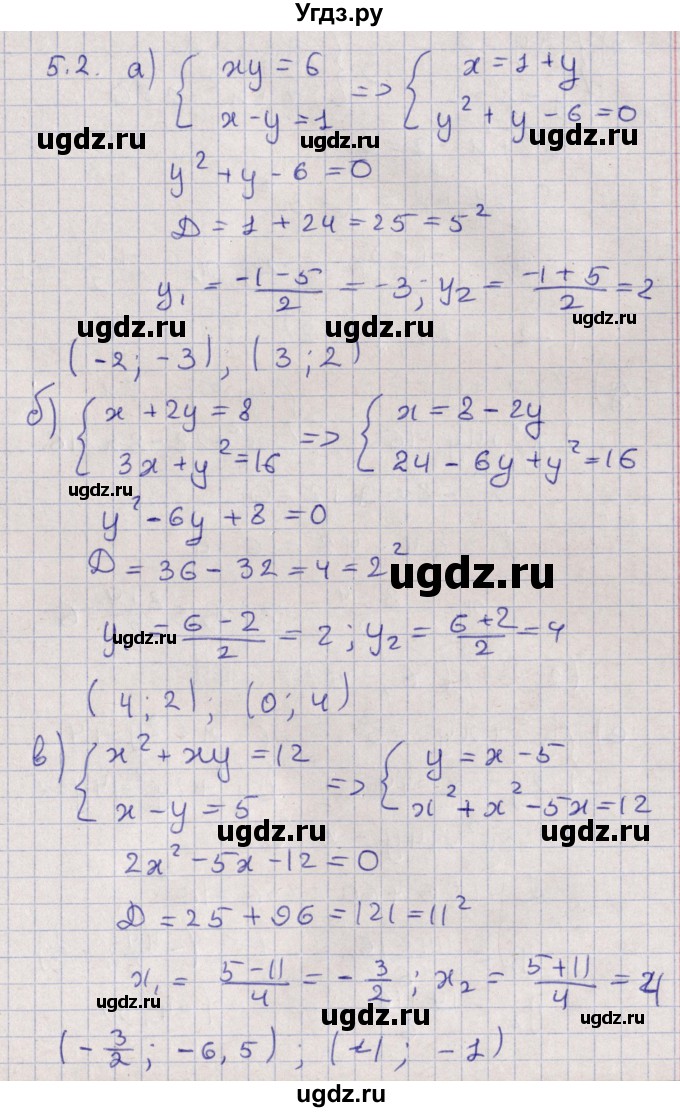 Угдз.ру
5.2. а) { xy = 6 => { x = 1 + y
x - y = 1 y² + y - 6 = 0
ugdz.ru ugdz.ru
y² + y - 6 = 0
Д = 1 + 24 = 25 = 5²
y₁ = (-1 - 5)/2 = -3; y₂ = (-1 + 5)/2 = 2
ugdz.ru ugdz.ru ugdz.ru
(-2; -3), (3; 2)
б) { x + 2y = 8 => { x = 8 - 2y
3x + y² = 16 24 - 6y + y² = 16
ugdz.ru ugdz.ru
y² - 6y + 8 = 0
Д = 36 - 32 = 4 = 2²
ugdz.ru
y₁ = (6 - 2)/2 = 2; y₂ = (6 + 2)/2 = 4
ugdz.ru ugdz.ru
(4; 2); (0; 4)
в) { x² + xy = 12 => { y = x - 5
x - y = 5 x² + x² - 5x = 12
ugdz.ru ugdz.ru
2x² - 5x - 12 = 0
Д = 25 + 96 = 121 = 11²
x₁ = (5 - 11)/4 = -3/2; x₂ = (5 + 11)/4 = 4
ugdz.ru ugdz.ru ugdz.ru
(-3/2; -6,5); (4; -1)
ugdz.ru